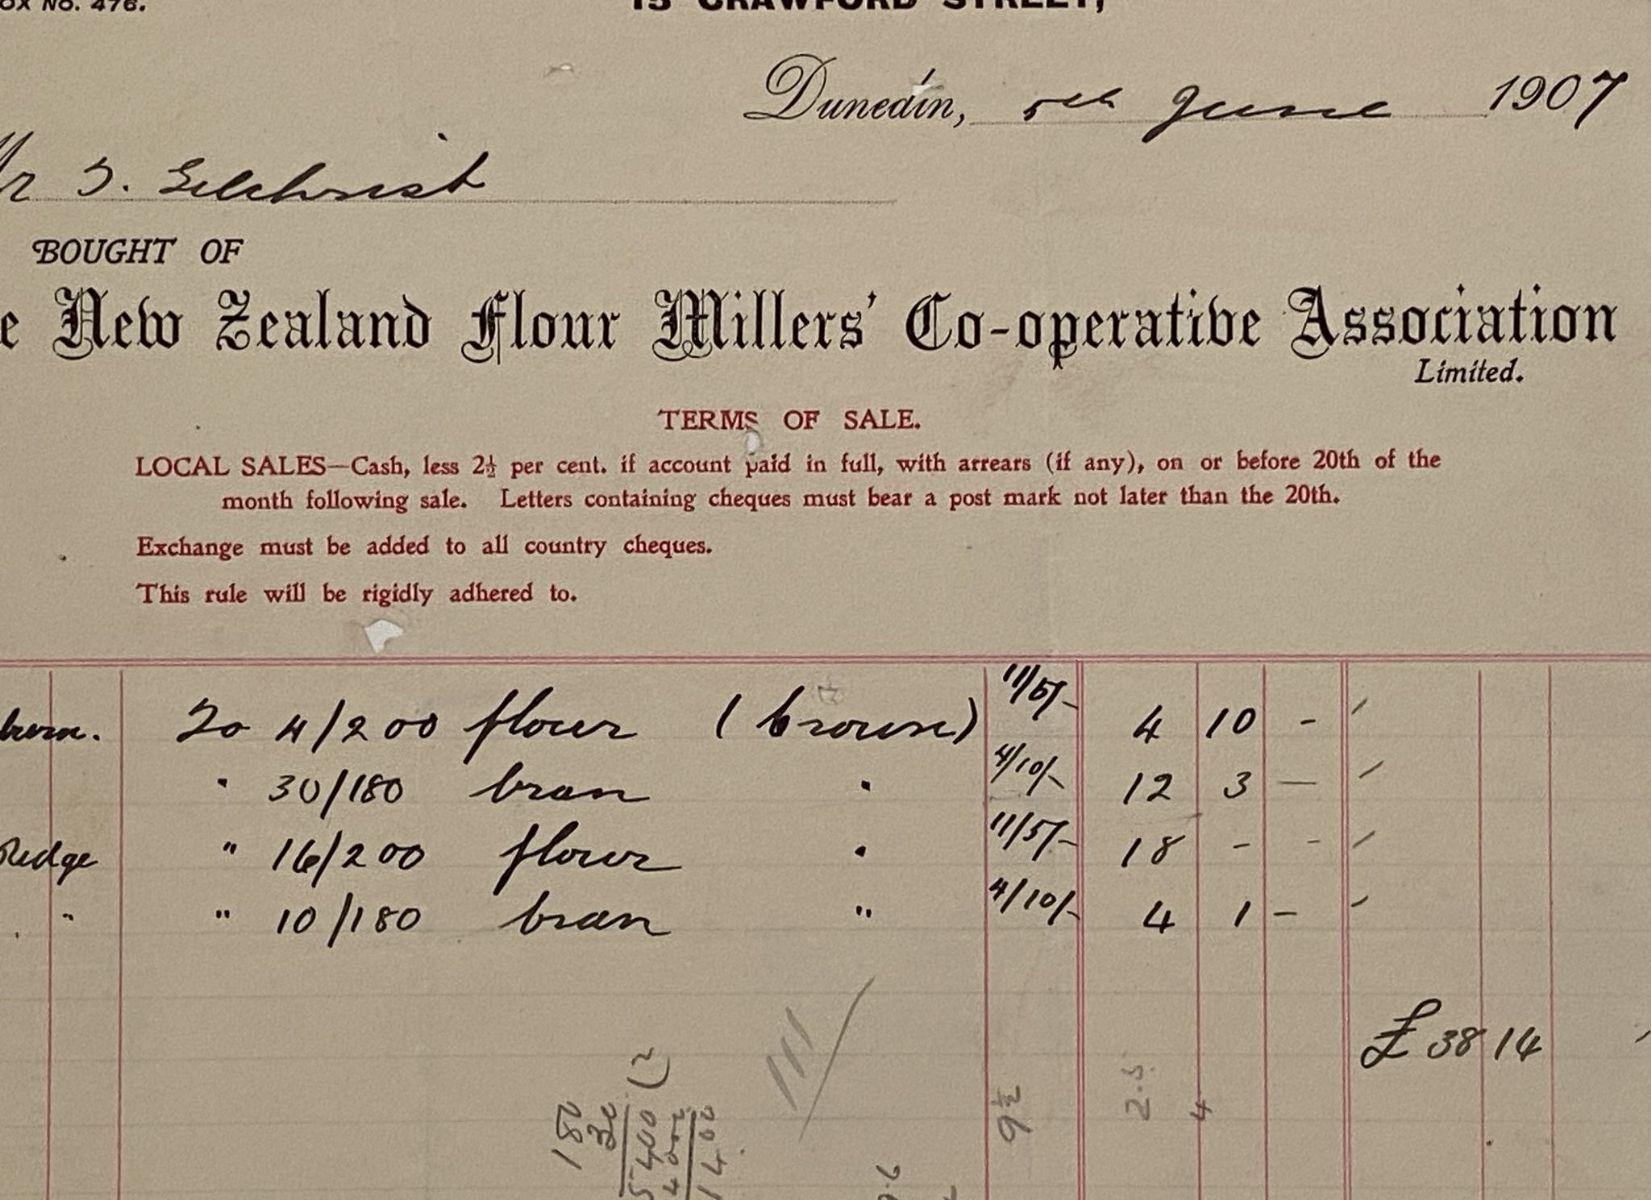 OX NO. 476.
15 CRAWFORD STREET,
Dunedin, 5th June 1907
Mr T. Gilchrist
BOUGHT OF
e New Zealand Flour Millers' Co-operative Association
Limited.
TERMS OF SALE.
LOCAL SALES—Cash, less 2½ per cent. if account paid in full, with arrears (if any), on or before 20th of the
month following sale. Letters containing cheques must bear a post mark not later than the 20th.
Exchange must be added to all country cheques.
This rule will be rigidly adhered to.
burn. To 4/200 flour (brown) 11/5/- 4 10 -
" 30/180 bran " 4/10/- 12 3 —
Sledge " 16/200 flour " 11/5/- 18 - -
" " 10/180 bran " 4/10/- 4 1 -
£38 14
180
30
5400 (2
4000
1400
9½
2.5.
4